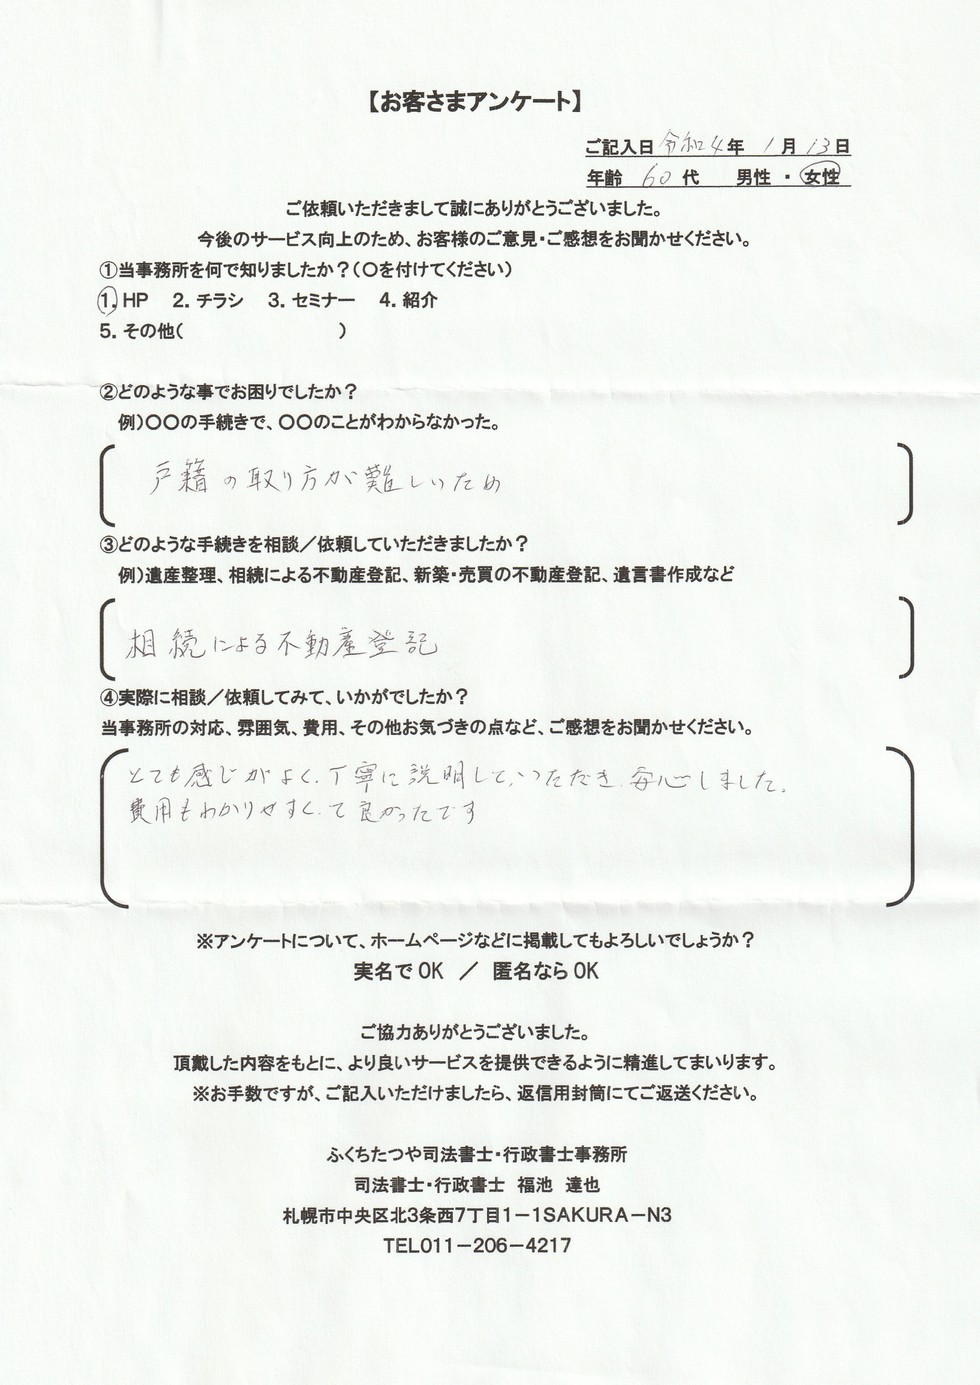 【お客さまアンケート】
ご記入日 令和4年 1月13日
年齢 60代 男性 ・ 女性
ご依頼いただきまして誠にありがとうございました。
今後のサービス向上のため、お客様のご意見・ご感想をお聞かせください。
①当事務所を何で知りましたか？（○を付けてください）
1. HP 2. チラシ 3. セミナー 4. 紹介
5. その他（ ）
②どのような事でお困りでしたか？
例）○○の手続きで、○○のことがわからなかった。
戸籍の取り方が難しいため
③どのような手続きを相談／依頼していただきましたか？
例）遺産整理、相続による不動産登記、新築・売買の不動産登記、遺言書作成など
相続による不動産登記
④実際に相談／依頼してみて、いかがでしたか？
当事務所の対応、雰囲気、費用、その他お気づきの点など、ご感想をお聞かせください。
とても感じがよく、丁寧に説明して、いただき、安心しました。
費用もわかりやすく、て良かったです
※アンケートについて、ホームページなどに掲載してもよろしいでしょうか？
実名でOK ／ 匿名ならOK
ご協力ありがとうございました。
頂戴した内容をもとに、より良いサービスを提供できるように精進してまいります。
※お手数ですが、ご記入いただけましたら、返信用封筒にてご返送ください。
ふくちたつや司法書士・行政書士事務所
司法書士・行政書士 福池 達也
札幌市中央区北3条西7丁目1－1SAKURA－N3
TEL011－206－4217